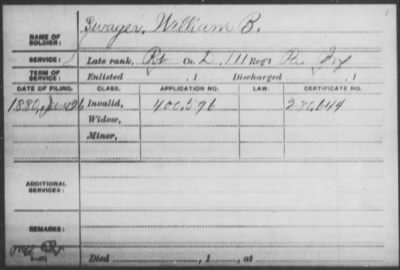 NAME OF SOLDIER: Zwager, William B.
SERVICE: Late rank, Pt Co. D, 111 Reg't Pa. Inf
TERM OF SERVICE: Enlisted , 1 Discharged , 1
DATE OF FILING. CLASS. APPLICATION NO. LAW. CERTIFICATE NO.
1880, Invalid, 400,596
Widow,
Minor,
ADDITIONAL SERVICES:
REMARKS:
Died , 1 , at